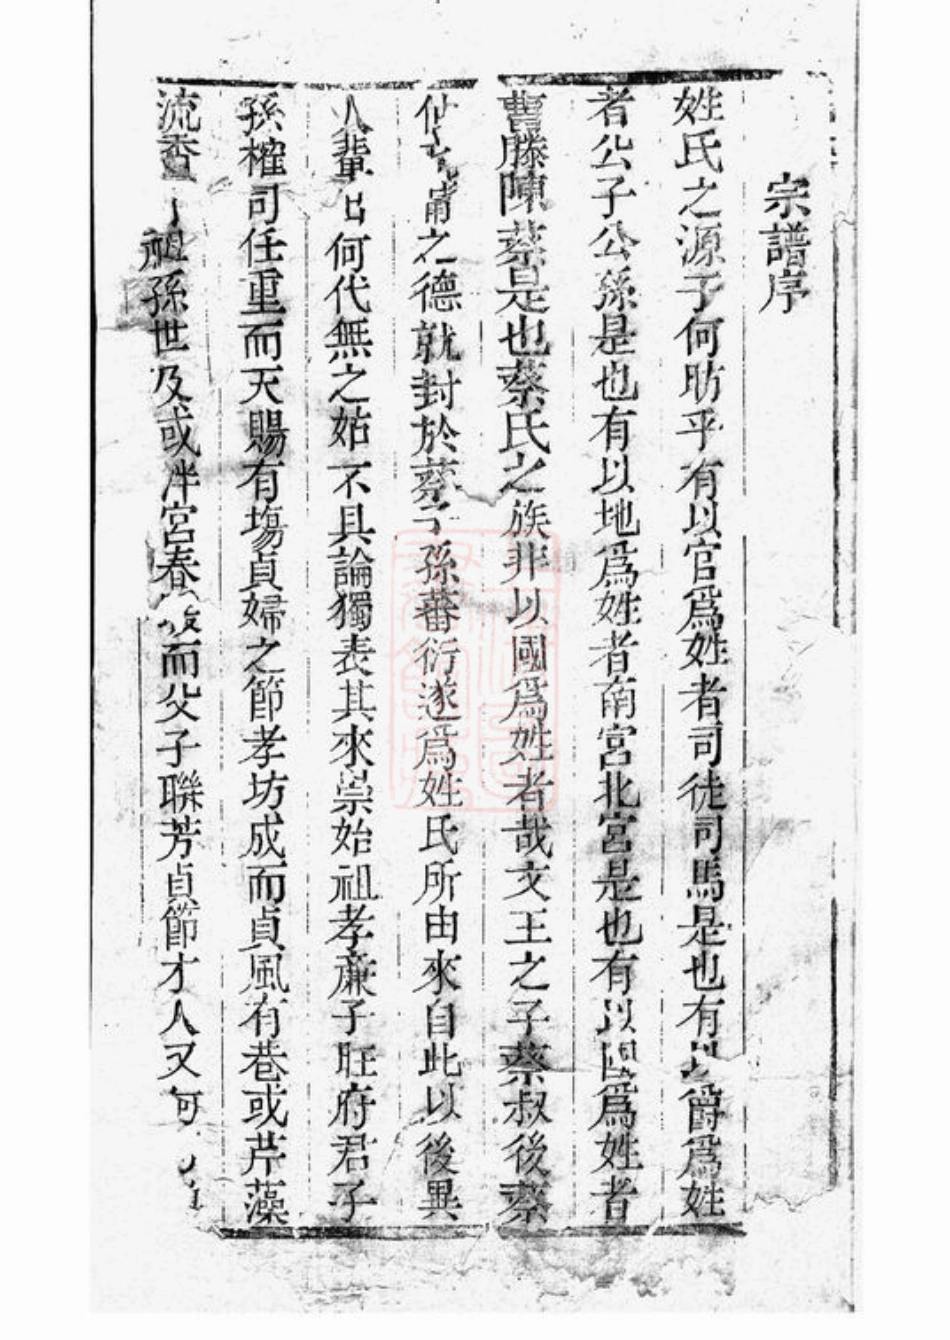 宗譜序
姓氏之源于何昉乎有以官爲姓者司徒司馬是也有以爵爲姓
者公子公孫是也有以地爲姓者南宮北宮是也有以國爲姓者
曹滕陳蔡是也蔡氏之族非以國爲姓者哉文王之子蔡叔後蔡
仲之德就封於蔡子孫蕃衍遂爲姓氏所由來自此以後異
人輩出何代無之姑不具論獨表其來崇始祖孝廉子旺府君子
孫權司任重而天賜有塲貞婦之節孝坊成而貞風有巷或芹藻
流香祖孫世及或泮宮春而父子聯芳貞節才人又何